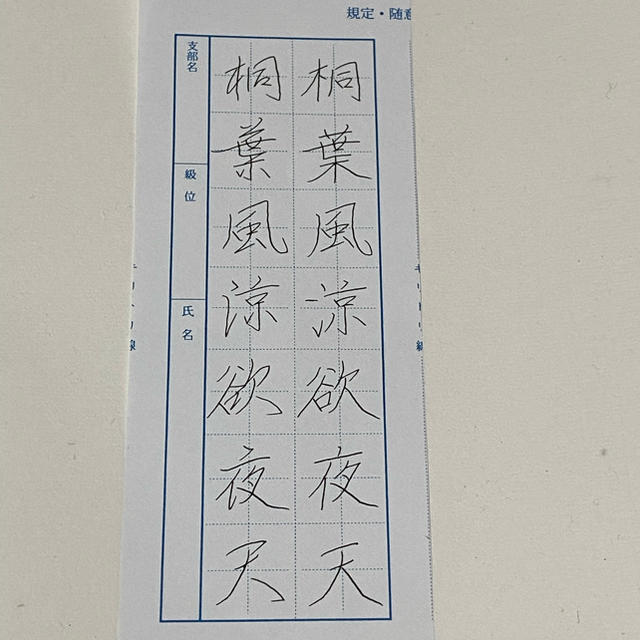 規定・随意
桐葉風涼欲夜天
桐葉風涼欲夜天
支部名
級位
氏名
キリトリ線